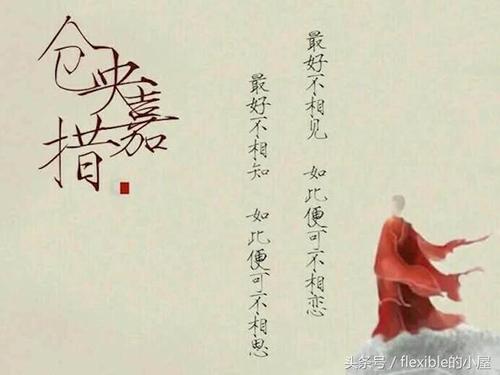 仓央嘉措
最好不相见 如此便可不相恋
最好不相知 如此便可不相思
头条号 / flexible的小屋